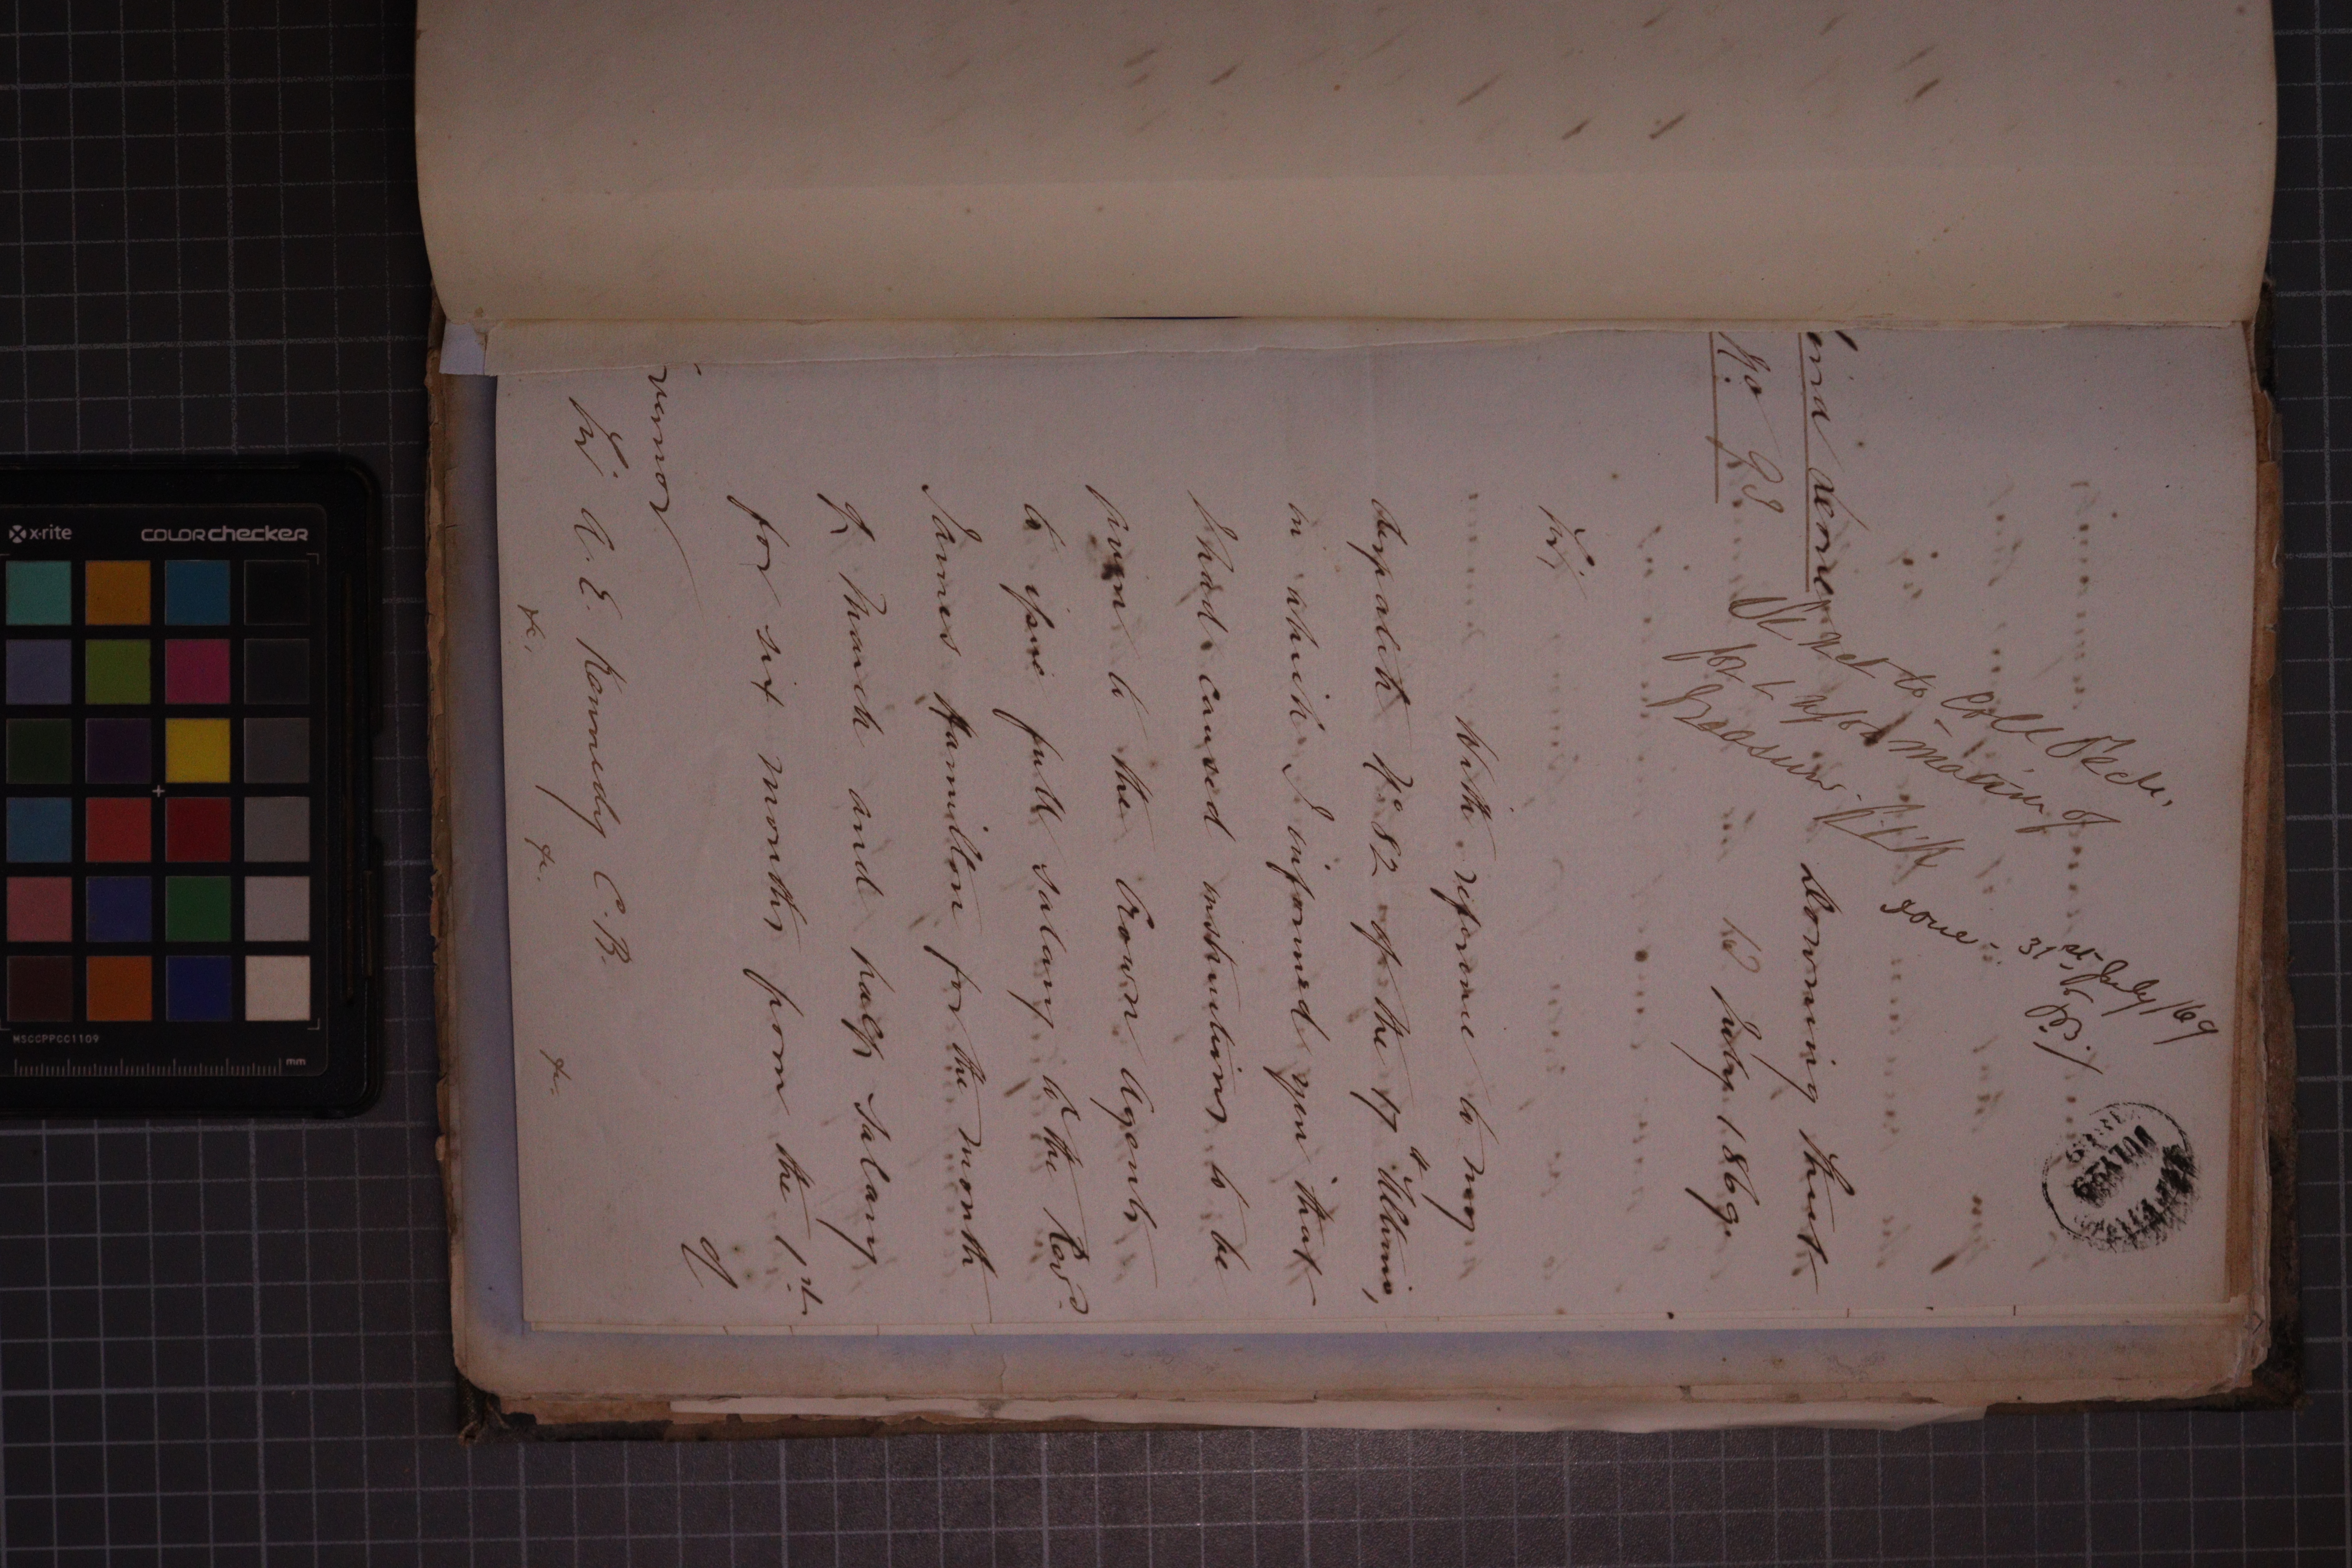 31st July /69
done -
Refer to Coll Secr.
for information of
Treasurer.
Downing Street
12 July 1869.
No 93
Sir,
With reference to my
despatch No 82 of the 17th Ultimo,
in which I informed you that
I had caused instructions to be
given to the Crown Agents
to issue full salary to the Revd
James Hamilton for the month
of March and half salary
for six months from the 1st
of
Sir A. E. Kennedy C. B.
&c. &c. &c.
x-rite
colorchecker
MSCCPPCC1109
mm